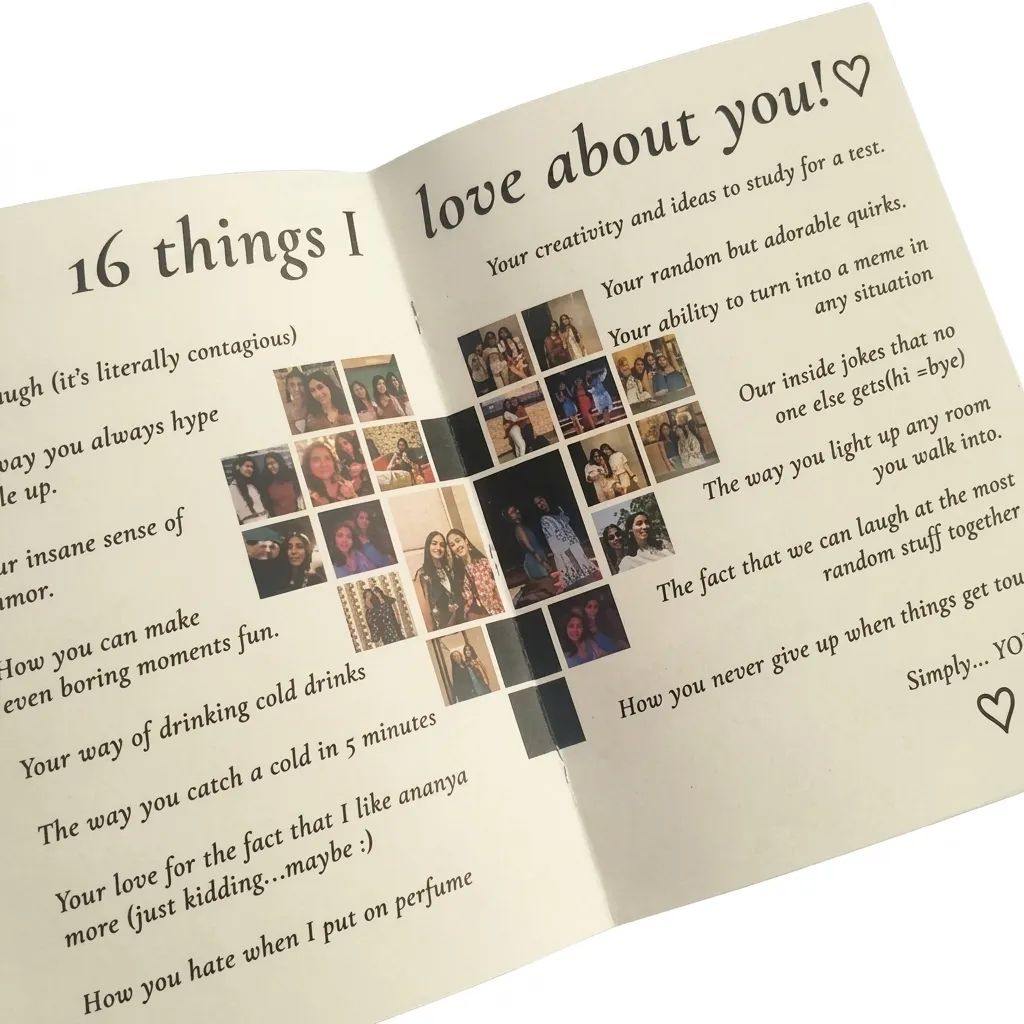 16 things I love about you!♡
(it's literally contagious)
you always hype
up.
insane sense of
How you can make
even boring moments fun.
Your way of drinking cold drinks
The way you catch a cold in 5 minutes
Your love for the fact that I like ananya
more (just kidding...maybe :)
How you hate when I put on perfume
Your creativity and ideas to study for a test.
Your random but adorable quirks.
Your ability to turn into a meme in
any situation
Our inside jokes that no
one else gets(hi =bye)
The way you light up any room
you walk into.
The fact that we can laugh at the most
random stuff together
How you never give up when things get
Simply...
♡